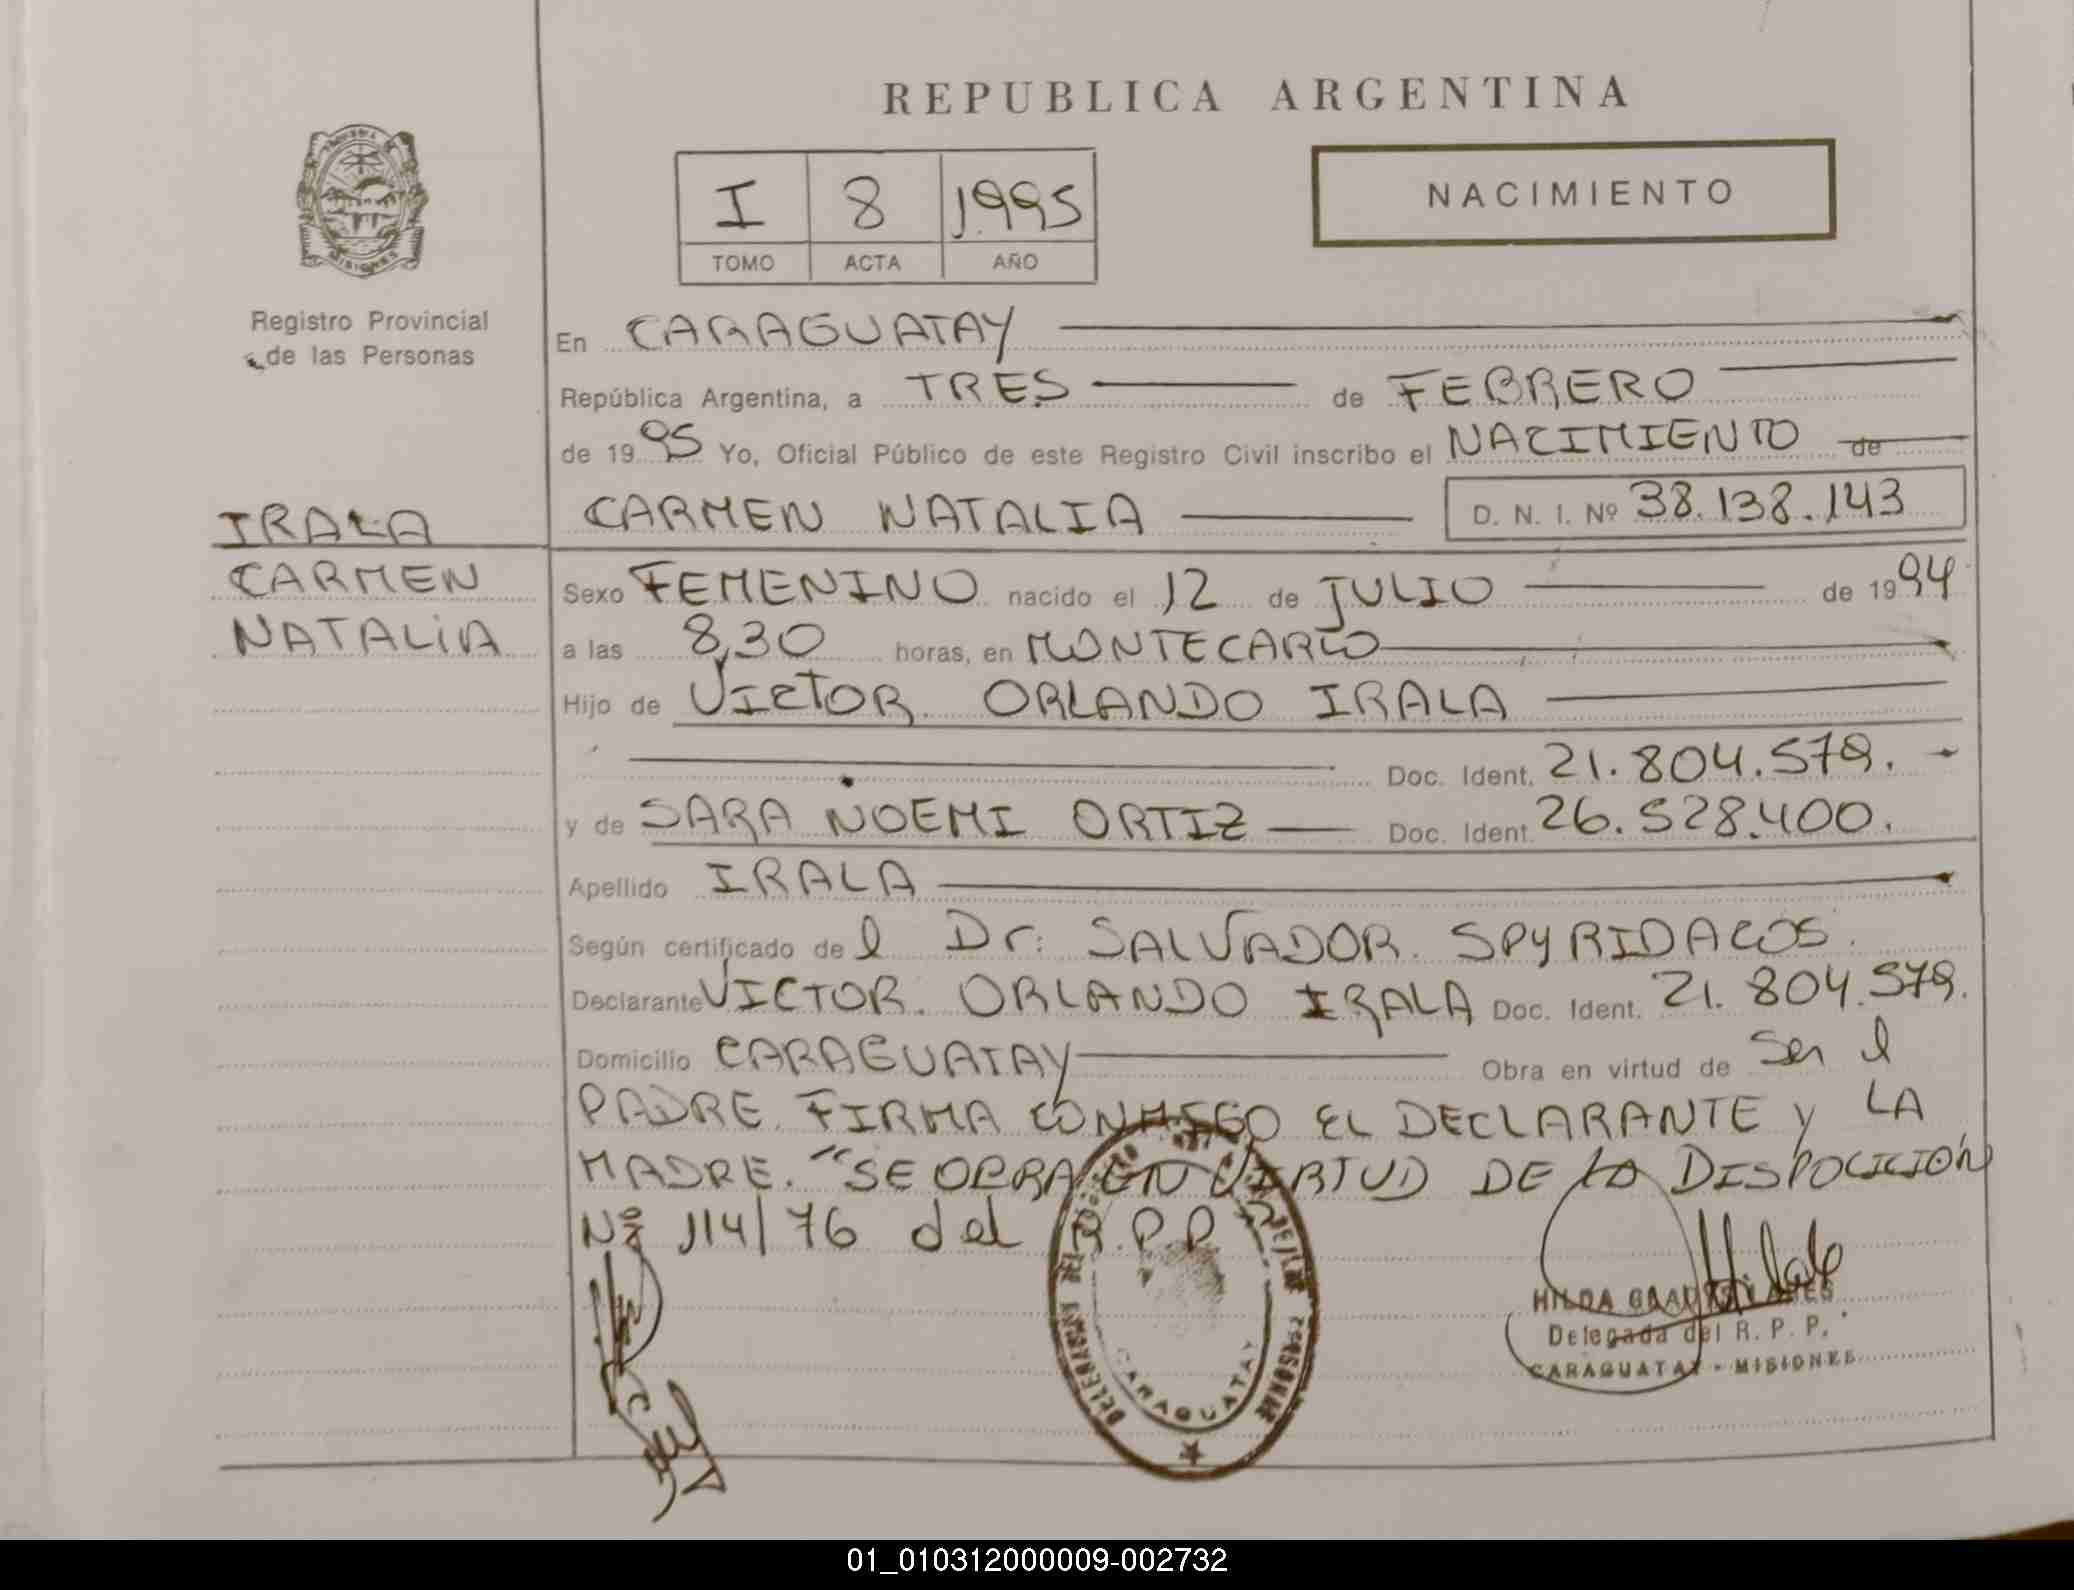 REPUBLICA ARGENTINA
NACIMIENTO
I 8 1995
TOMO ACTA AÑO
MISIONES
Registro Provincial
de las Personas
En CARAGUATAY
República Argentina, a TRES de FEBRERO
de 1995 Yo, Oficial Público de este Registro Civil inscribo el NACIMIENTO de
CARMEN NATALIA D. N. I. Nº 38.138.143
IRALA
CARMEN
NATALIA
Sexo FEMENINO nacido el 12 de JULIO de 1994
a las 8,30 horas, en MONTECARLO
Hijo de VICTOR ORLANDO IRALA
Doc. Ident. 21.804.579.
y de SARA NOEMI ORTIZ Doc. Ident. 26.528.400.
Apellido IRALA
Según certificado del Dr: SALVADOR SPYRIDACOS.
Declarante VICTOR ORLANDO IRALA Doc. Ident. 21.804.579.
Domicilio CARAGUATAY Obra en virtud de Ser el
PADRE. FIRMA CONMIGO EL DECLARANTE y LA
MADRE. "SE OBRA EN VIRTUD DE LA DISPOCICIÓN
Nº 114/76 del R.P.P
CARAGUATAY
HILDA
Delegada del R. P. P.
CARAGUATAY - MISIONES
01_010312000009-002732